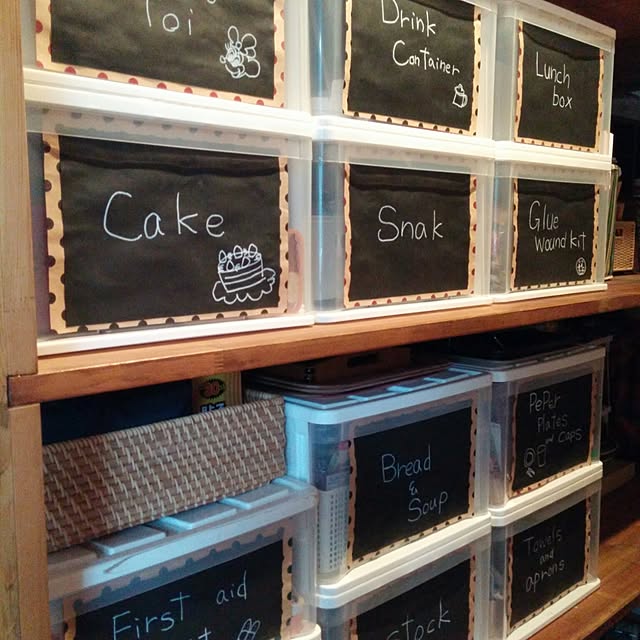 Toi
Drink
Container
Lunch
box
Cake
Snak
Glue
wound kit
Bread
&
Soup
PePer
Plates
and Caps
First aid
Stock
Towels
and
aprons